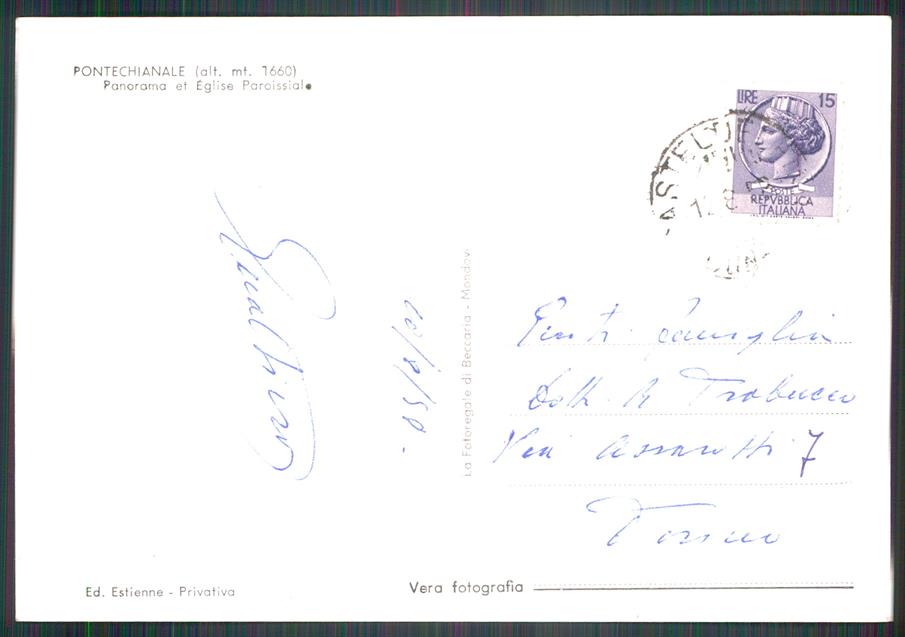 PONTECHIANALE (alt. mt. 1660)
Panorama et Église Paroissiale
LIRE 15
POSTE
REPVBBLICA
ITALIANA
ASTEL
Gualtiero
10/8/58.
La Fotoregale di Beccaria - Mondovì
Famiglia
Dott. A Trabucco
Via Assarotti 7
Torino
Ed. Estienne - Privativa
Vera fotografia